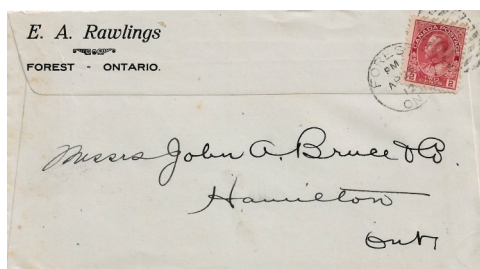 E. A. Rawlings
FOREST - ONTARIO.
CANADA POSTAGE
2 2
FOREST
PM
ONT
Messrs John A. Bruce & Co.
Hamilton
Ont